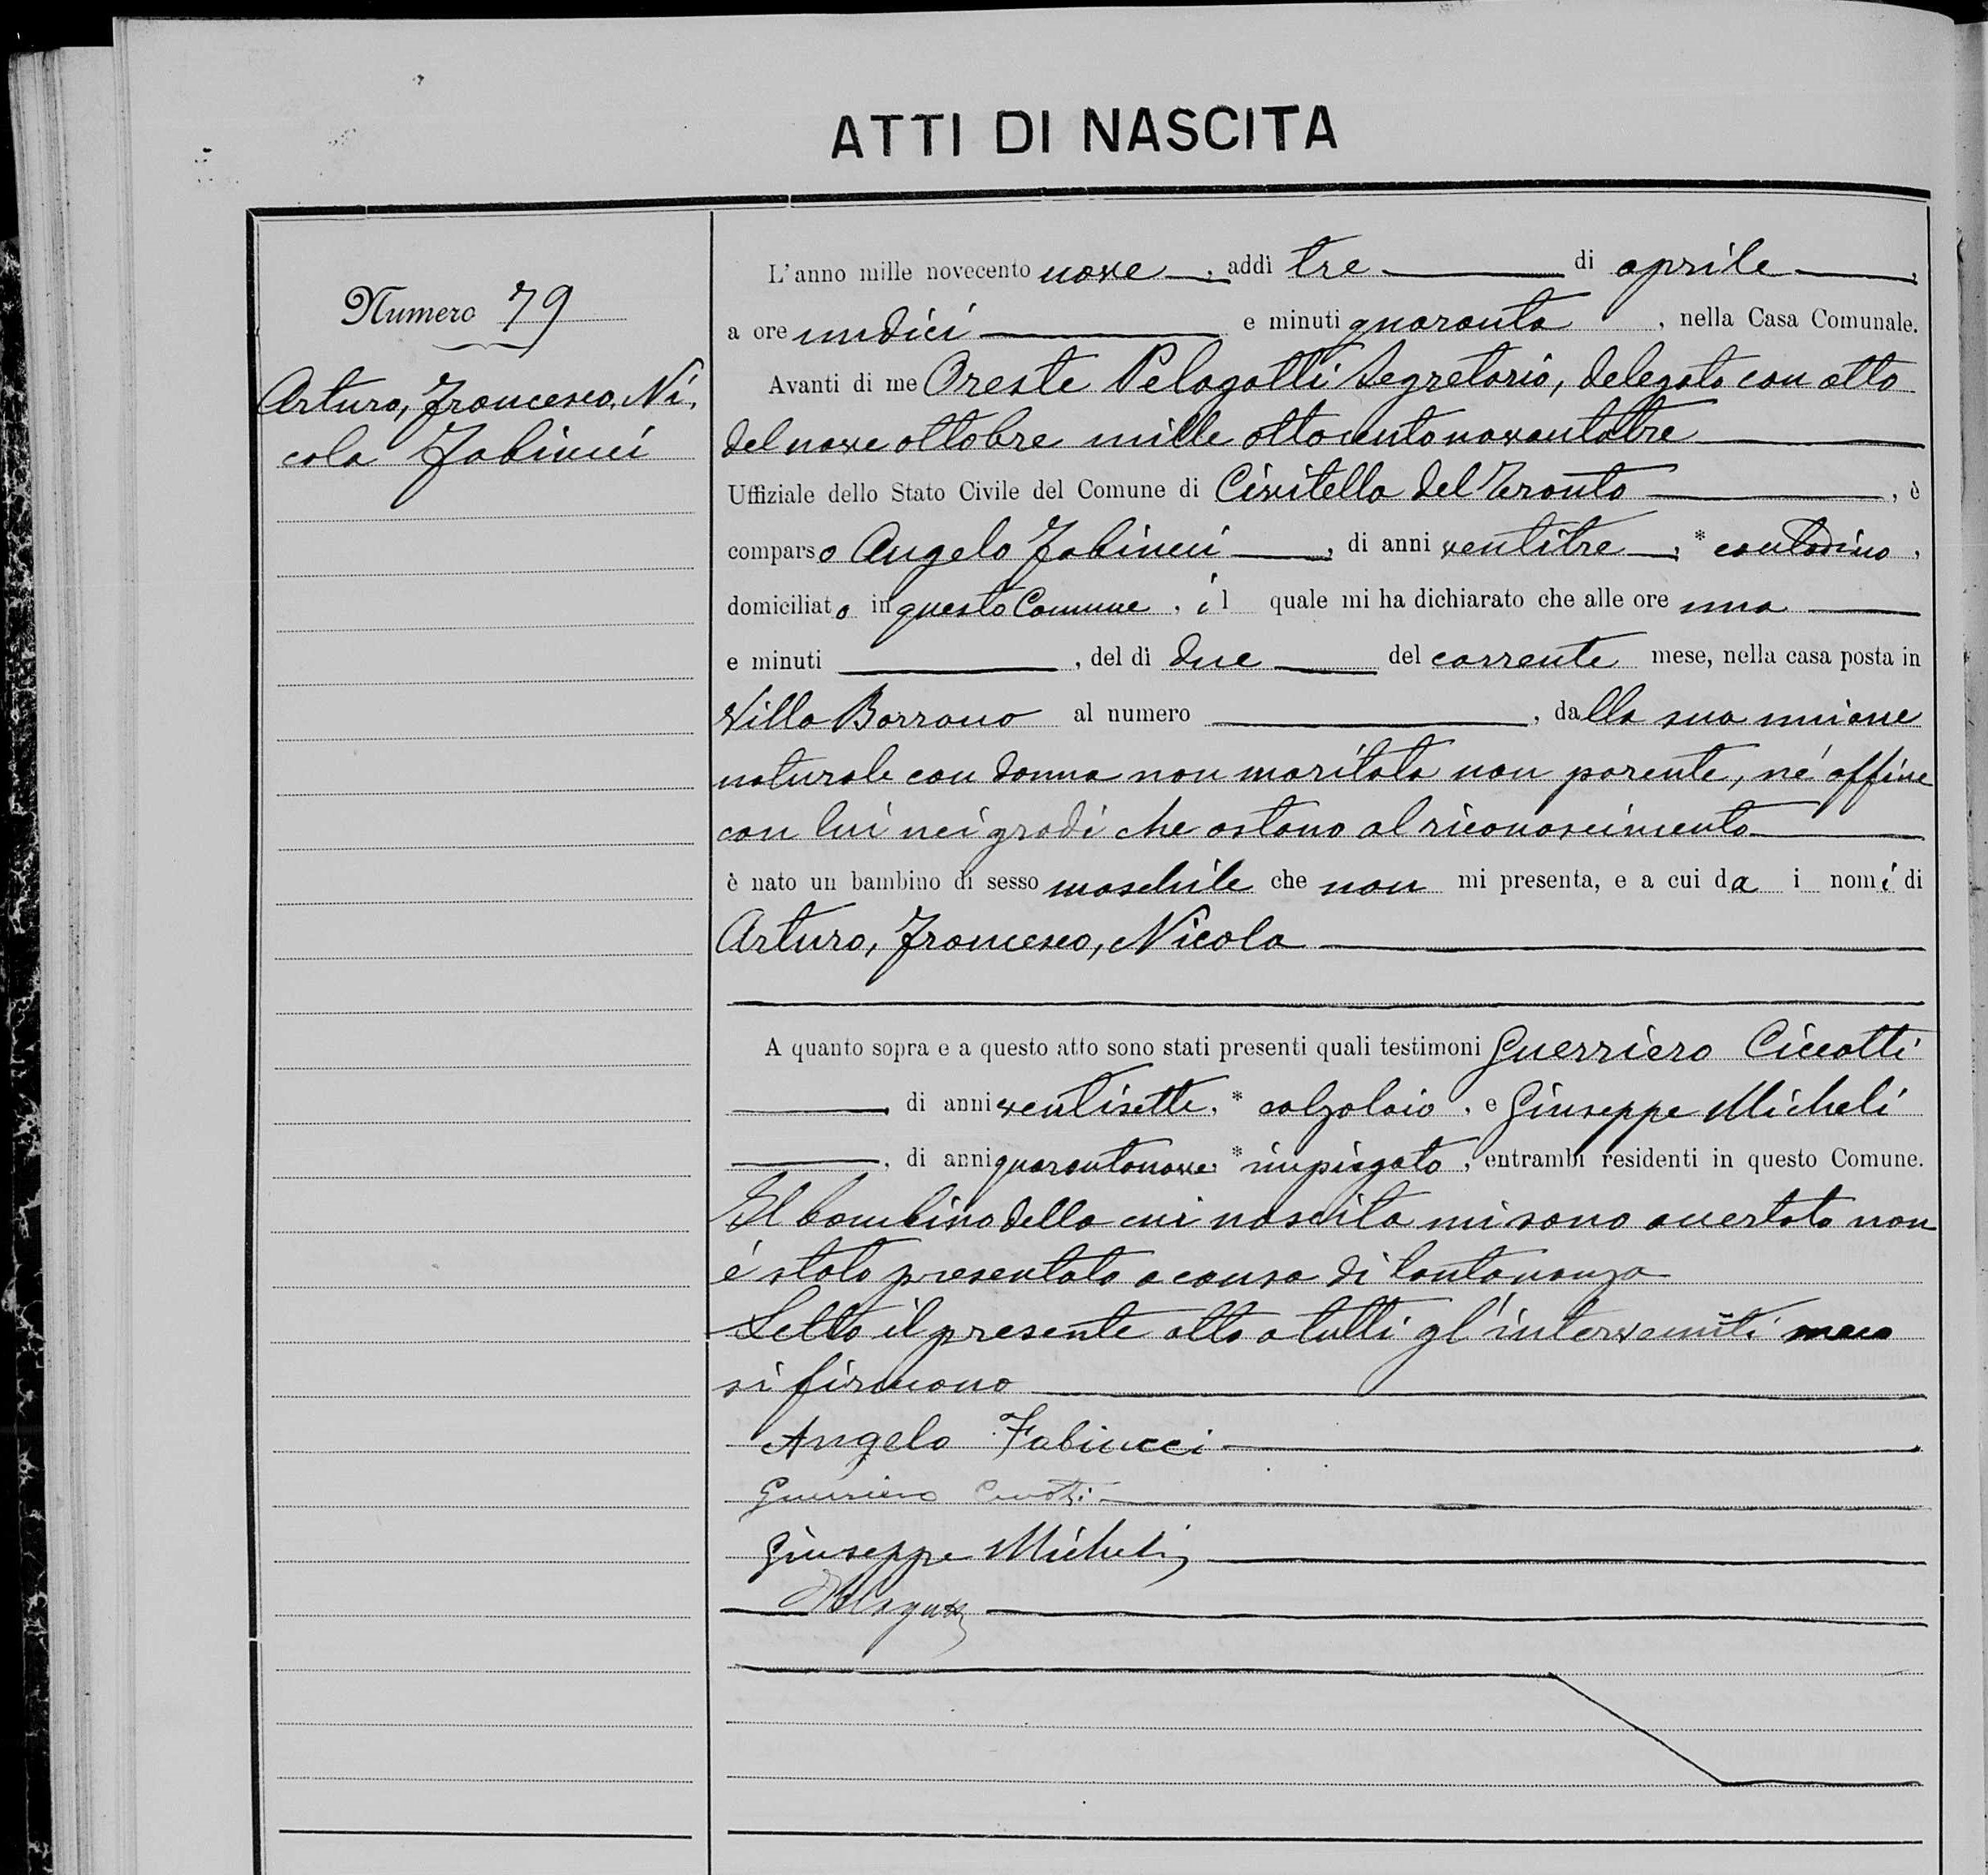 ATTI DI NASCITA
Numero 79
Arturo, Francesco, Ni,
cola Fabiucci
L'anno mille novecento nove, addì tre di aprile,
a ore undici e minuti quaranta, nella Casa Comunale.
Avanti di me Oreste Pelagatti Segretario, delegato con atto
del nove ottobre mille ottocentonovantatre
Uffiziale dello Stato Civile del Comune di Civitella del Tronto, è
comparso Angelo Fabiucci, di anni ventitre, * contadino,
domiciliato in questo Comune, il quale mi ha dichiarato che alle ore una
e minuti , del dì due del corrente mese, nella casa posta in
Villa Borrano al numero , dalla sua unione
naturale con donna non maritata non parente, né affine
con lui nei gradi che ostano al riconoscimento
è nato un bambino di sesso maschile che non mi presenta, e a cui da i nomi di
Arturo, Francesco, Nicola
A quanto sopra e a questo atto sono stati presenti quali testimoni Guerriero Ciccotti
, di anni ventisette, * calzolaio, e Giuseppe Micheli
, di anni quarantanove, * impiegato, entrambi residenti in questo Comune.
Il bambino della cui nascita mi sono accertato non
é stato presentato a causa di lontananza
Letto il presente atto a tutti gl'intervenuti meco
si firmano
Angelo Fabiucci
Guerriero
Giuseppe Micheli